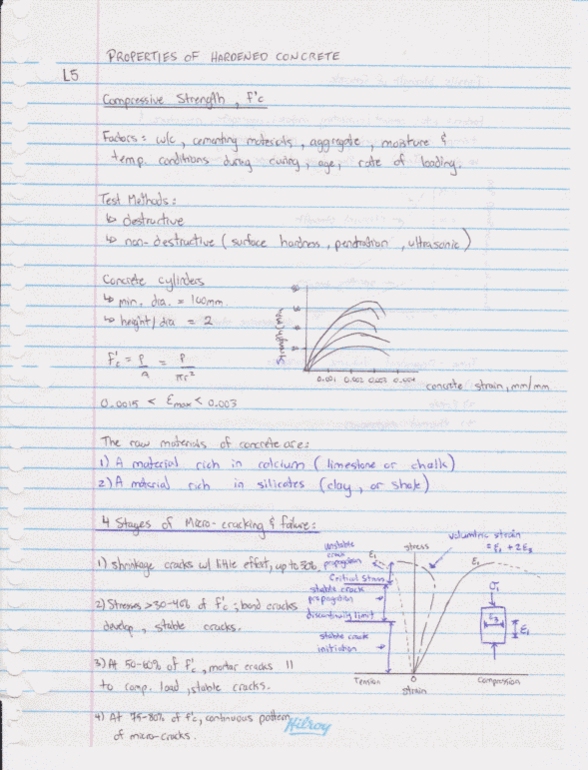 PROPERTIES OF HARDENED CONCRETE
L5
Compressive Strength, f'c
Factors: w/c, cementing materials, aggregate, moisture &
temp. conditions during curing, age, rate of loading.
Test Methods:
↳ destructive
↳ non-destructive (surface hardness, penetration, ultrasonic)
Concrete cylinders
↳ min. dia. = 100mm
↳ height/dia = 2
f'c = P/A = P/πr²
0.0015 < Emax < 0.003
0.001 0.002 0.003 0.004
concrete strain, mm/mm
The raw materials of concrete are:
1) A material rich in calcium (limestone or chalk)
2) A material rich in silicates (clay, or shale)
4 Stages of Micro-cracking & failure:
1) shrinkage cracks w/ little effect, up to 30%.
2) Stresses >30-40% of f'c; bond cracks
develop, stable cracks.
3) At 50-60% of f'c, mortar cracks ||
to comp. load, stable cracks.
4) At 75-80% of f'c, continuous pattern
of micro-cracks.
unstable
crack
propagation
Critical Stress
stable crack
propagation
discontinuity limit
stable crack
initiation
stress
volumetric strain
= ε1 + 2ε3
ε1
ε1
σ1
ε3
ε1
Tension
0
strain
Compression
Hilroy